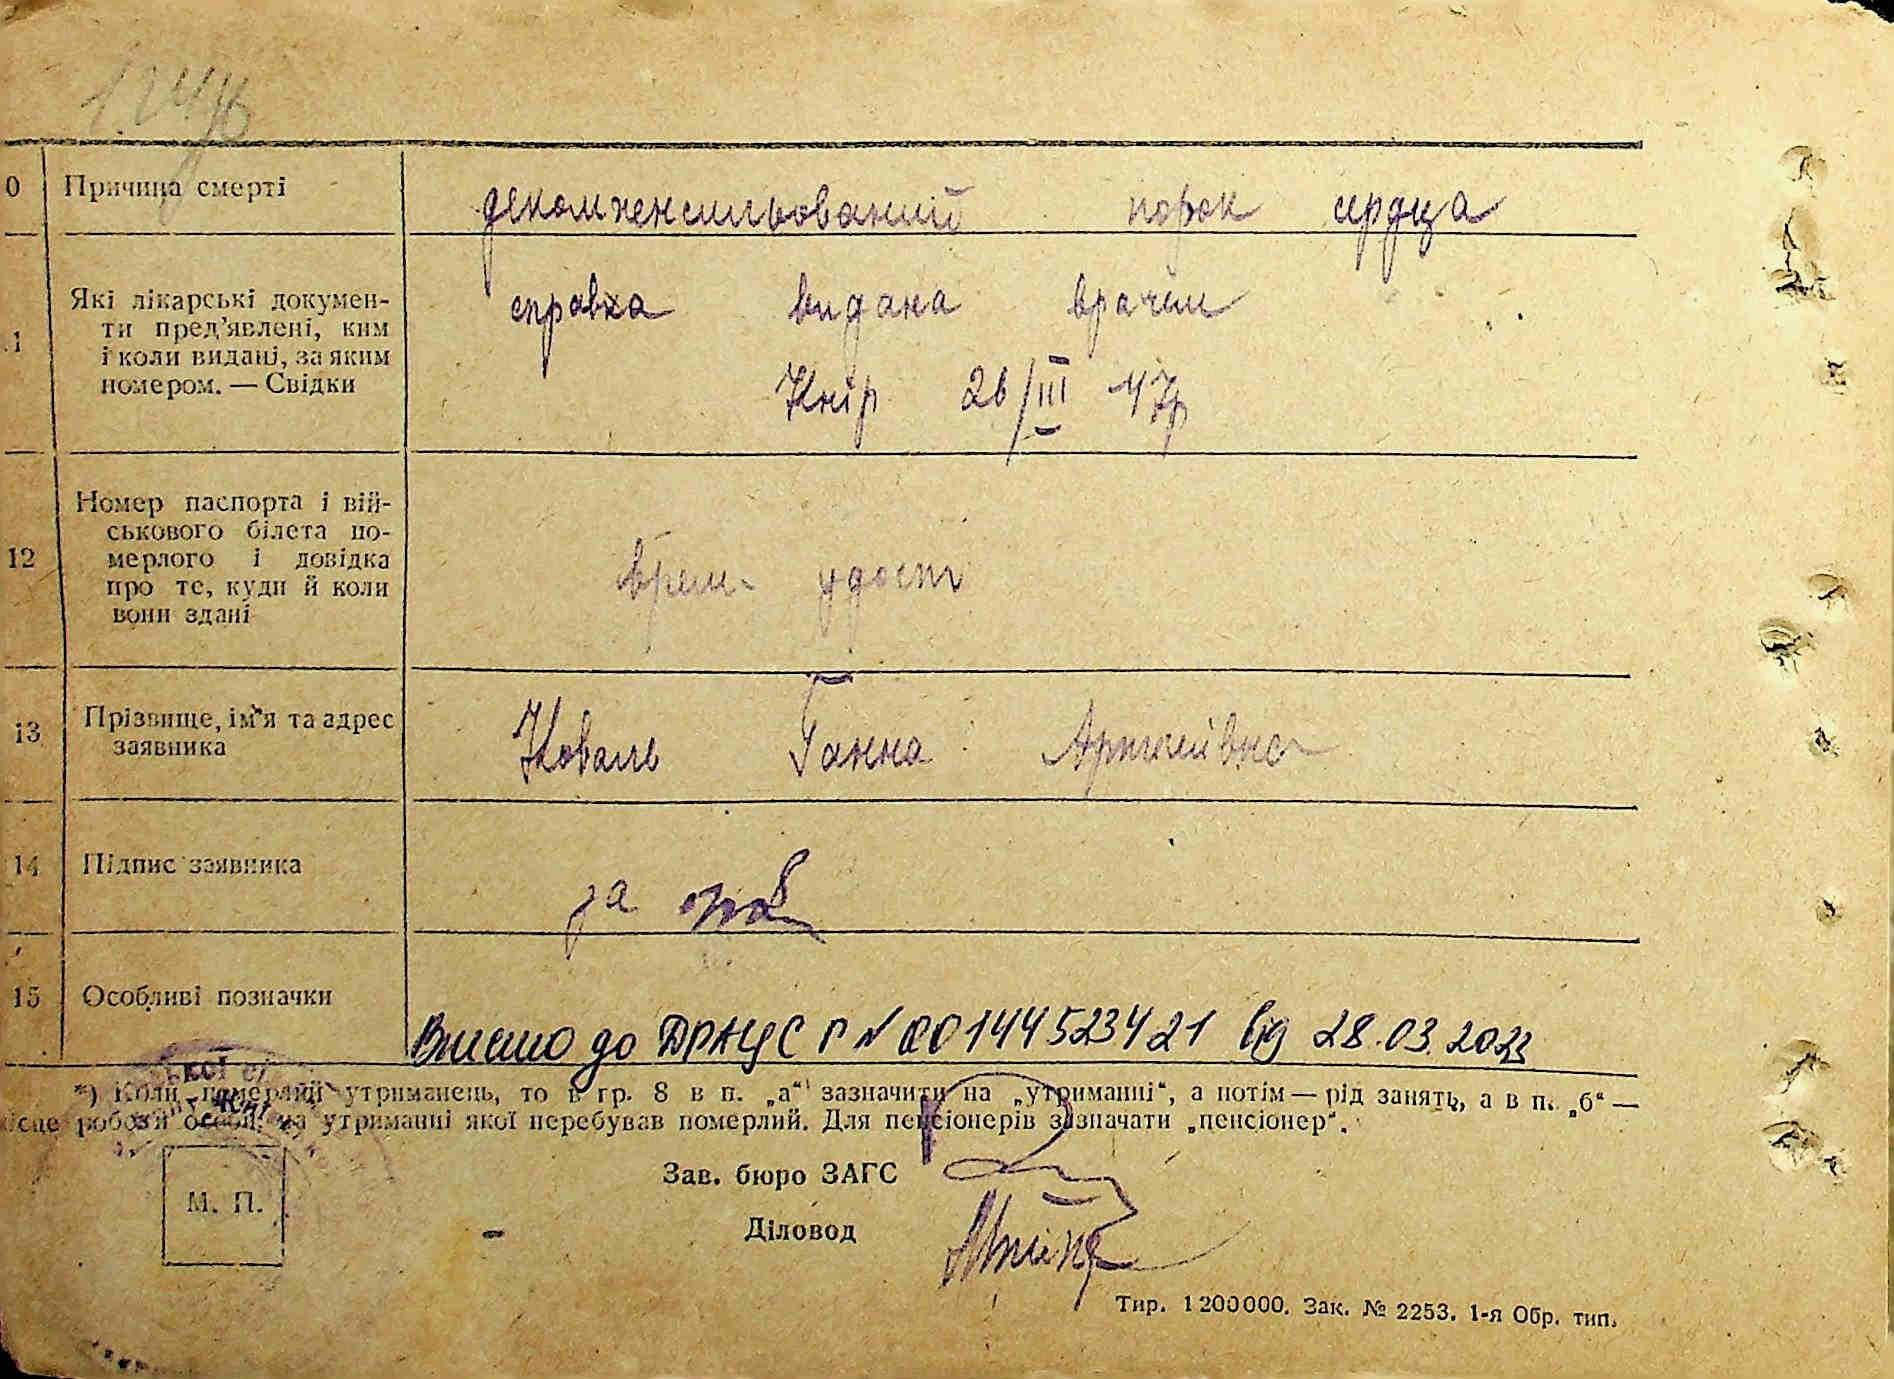 0 Причина смерті декомпенсильований порок сердца
1 Які лікарські докумен-
ти пред'явлені, ким
і коли видані, за яким
номером. — Свідки
справка видана врачем
Кнір 26/III 47р
12 Номер паспорта і вій-
ськового білета по-
мерлого і довідка
про те, куди й коли
вони здані
врем. удост
13 Прізвище, ім'я та адрес
заявника
Коваль Ганна
14 Підпис заявника
за
15 Особливі позначки
Внесено до ДРАЦС г № 00144523421 від 28.03.2023
*) Коли померлий утриманець, то в гр. 8 в п. „а“ зазначити на „утриманні“, а потім — рід занять, а в п. „б“ —
ісце роботи особи, на утриманні якої перебував померлий. Для пенсіонерів зазначати „пенсіонер“.
М. П.
Зав. бюро ЗАГС
Діловод
Тир. 1200000. Зак. № 2253. 1-я Обр. тип.